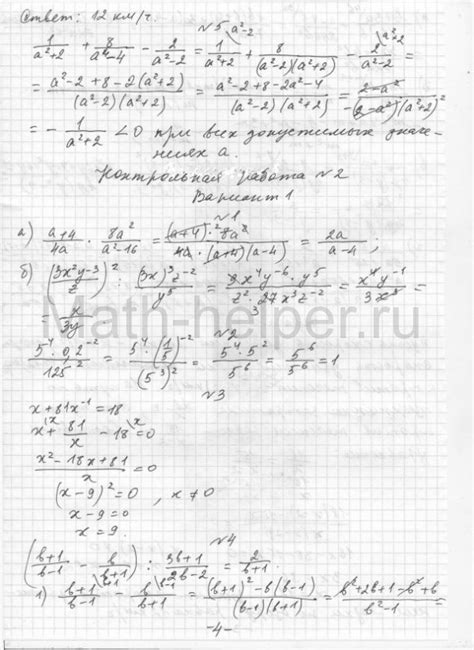 Ответ: 12 км/ч.
№5
1/(a²+2) + 8/(a⁴-4) - 2/(a²-2) = 1\a²-2/(a²+2) + 8/((a²-2)(a²+2)) - 2\a²+2/(a²-2) =
= (a²-2+8-2(a²+2))/((a²-2)(a²+2)) = (a²-2+8-2a²-4)/((a²-2)(a²+2)) = (2-a²)/(-(2-a²)(a²+2)) =
= - 1/(a²+2) <0 при всех допустимых значе-
ниях a.
Контрольная работа №2
Вариант 1
№1
а) (a+4)/4a · 8a²/(a²-16) = ((a+4)·8a²)/(4a·(a+4)(a-4)) = 2a/(a-4) ;
б) ((3x²y⁻³)/z)² : ((3x)³z⁻²)/y⁵ = (9x⁴y⁻⁶·y⁵)/(z²·27x³z⁻²) = (x⁴y⁻¹)/(3x³) =
= x/3y
Math-helper.ru
№2
(5⁴·0,2⁻²)/125² = (5⁴·(1/5)⁻²)/(5³)² = (5⁴·5²)/5⁶ = 5⁶/5⁶ = 1
№3
x+81x⁻¹=18
x\x + 81/x - 18\x = 0
(x²-18x+81)/x = 0
(x-9)²=0 , x≠0
x-9=0
x=9.
№4
((b+1)/(b-1) - b/(b+1)) : (3b+1)/(2b-2) = 2/(b+1)
1) (b+1)\b+1/(b-1) - b\b-1/(b+1) = ((b+1)²-b(b-1))/((b-1)(b+1)) = (b²+2b+1-b²+b)/(b²-1) =
-4-